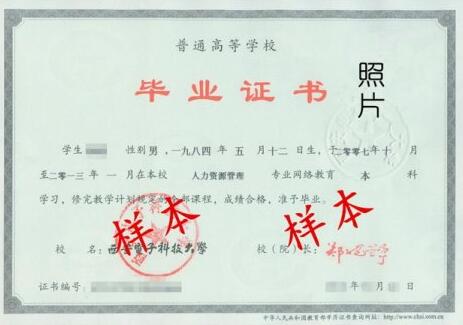 普通高等学校
毕业证书
照片
学生 性别男,一九八四年五月十二日生,于二〇〇七年十月
至二〇一三年一月在本校 人力资源管理 专业网络教育 本 科
学习,修完教学计划规定的全部课程,成绩合格,准予毕业。
样本
样本
校 名:西安电子科技大學
校(院)长:
证书编号: 年 月 日
中华人民共和国教育部学历证书查询网址:http://www.chsi.com.cn